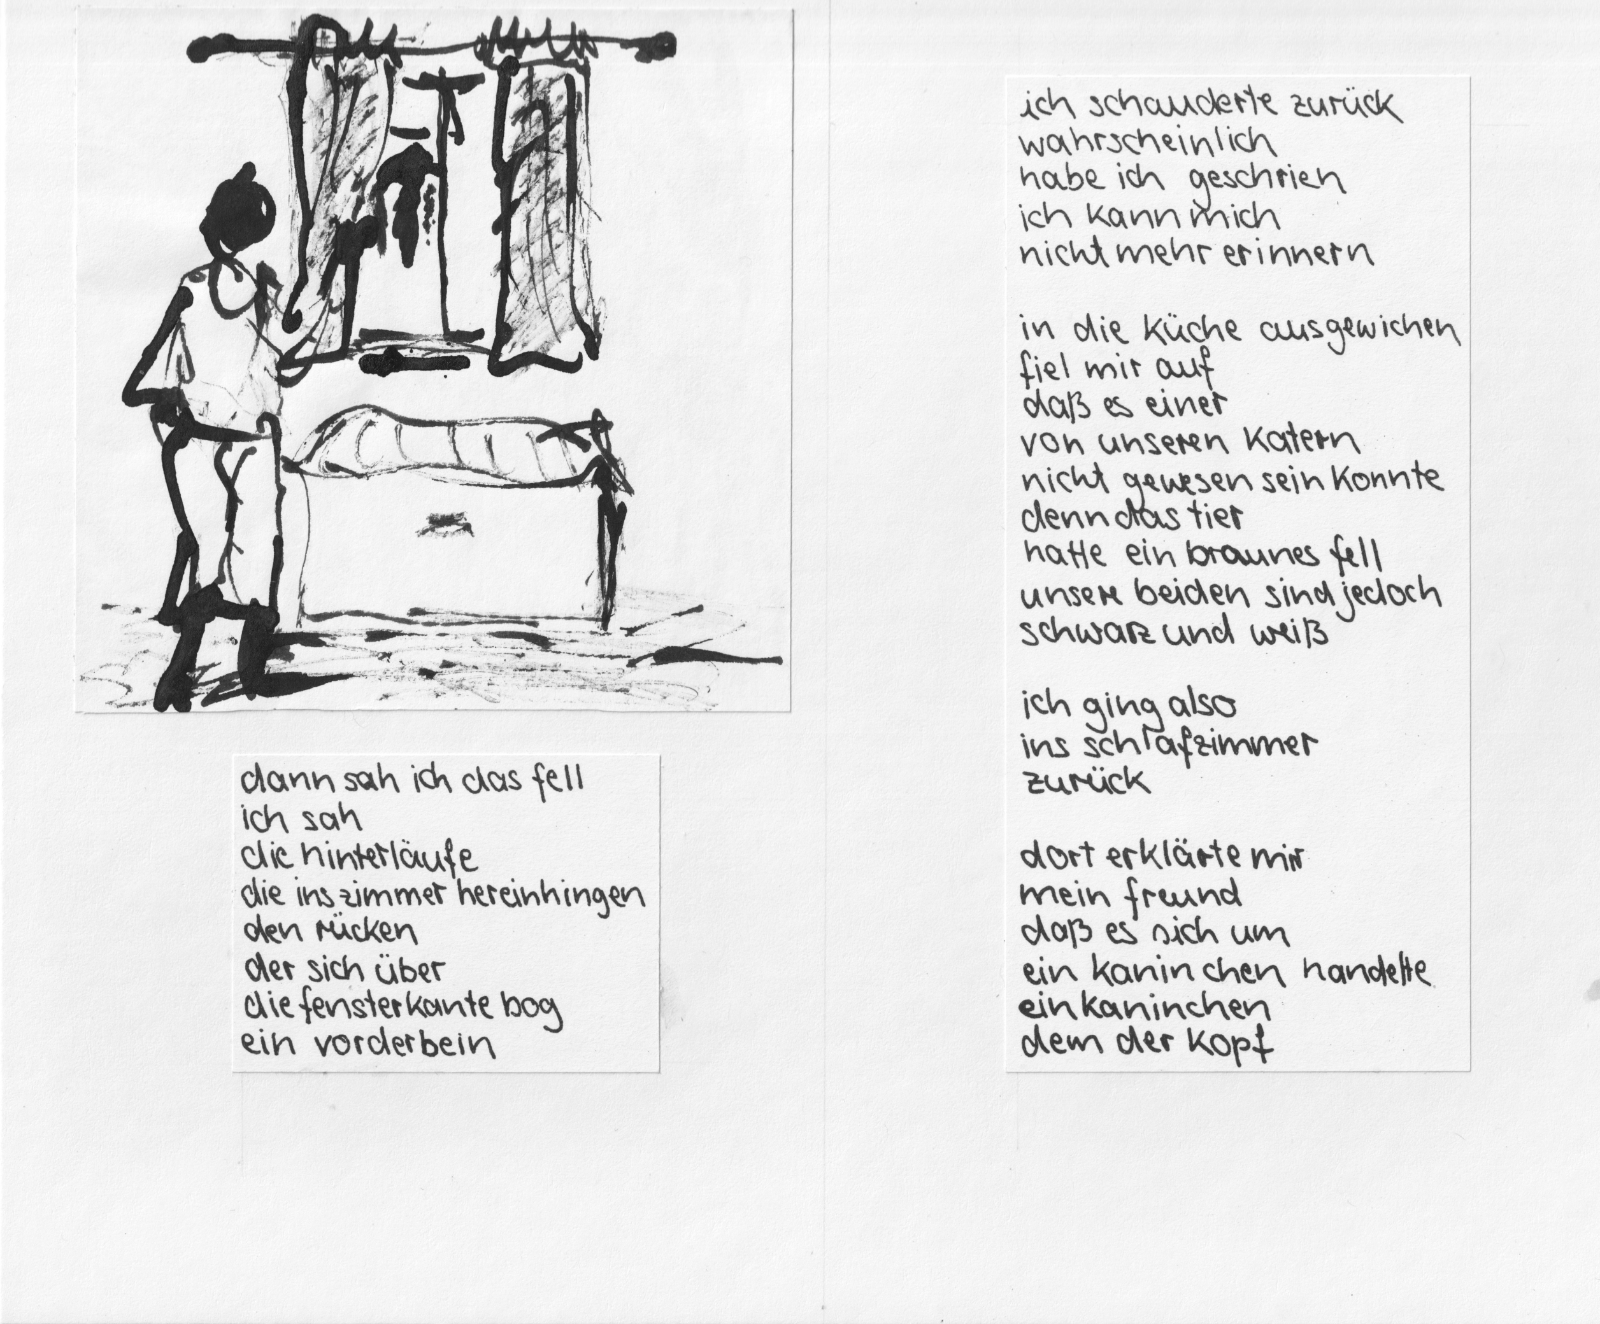 dann sah ich das fell
ich sah
die hinterläufe
die ins zimmer hereinhingen
den rücken
der sich über
die fensterkante bog
ein vorderbein
ich schauderte zurück
wahrscheinlich
habe ich geschrien
ich kann mich
nicht mehr erinnern
in die küche ausgewichen
fiel mir auf
daß es einer
von unseren katern
nicht gewesen sein konnte
denn das tier
hatte ein braunes fell
unsere beiden sind jedoch
schwarz und weiß
ich ging also
ins schlafzimmer
zurück
dort erklärte mir
mein freund
daß es sich um
ein kaninchen handelte
ein kaninchen
dem der kopf